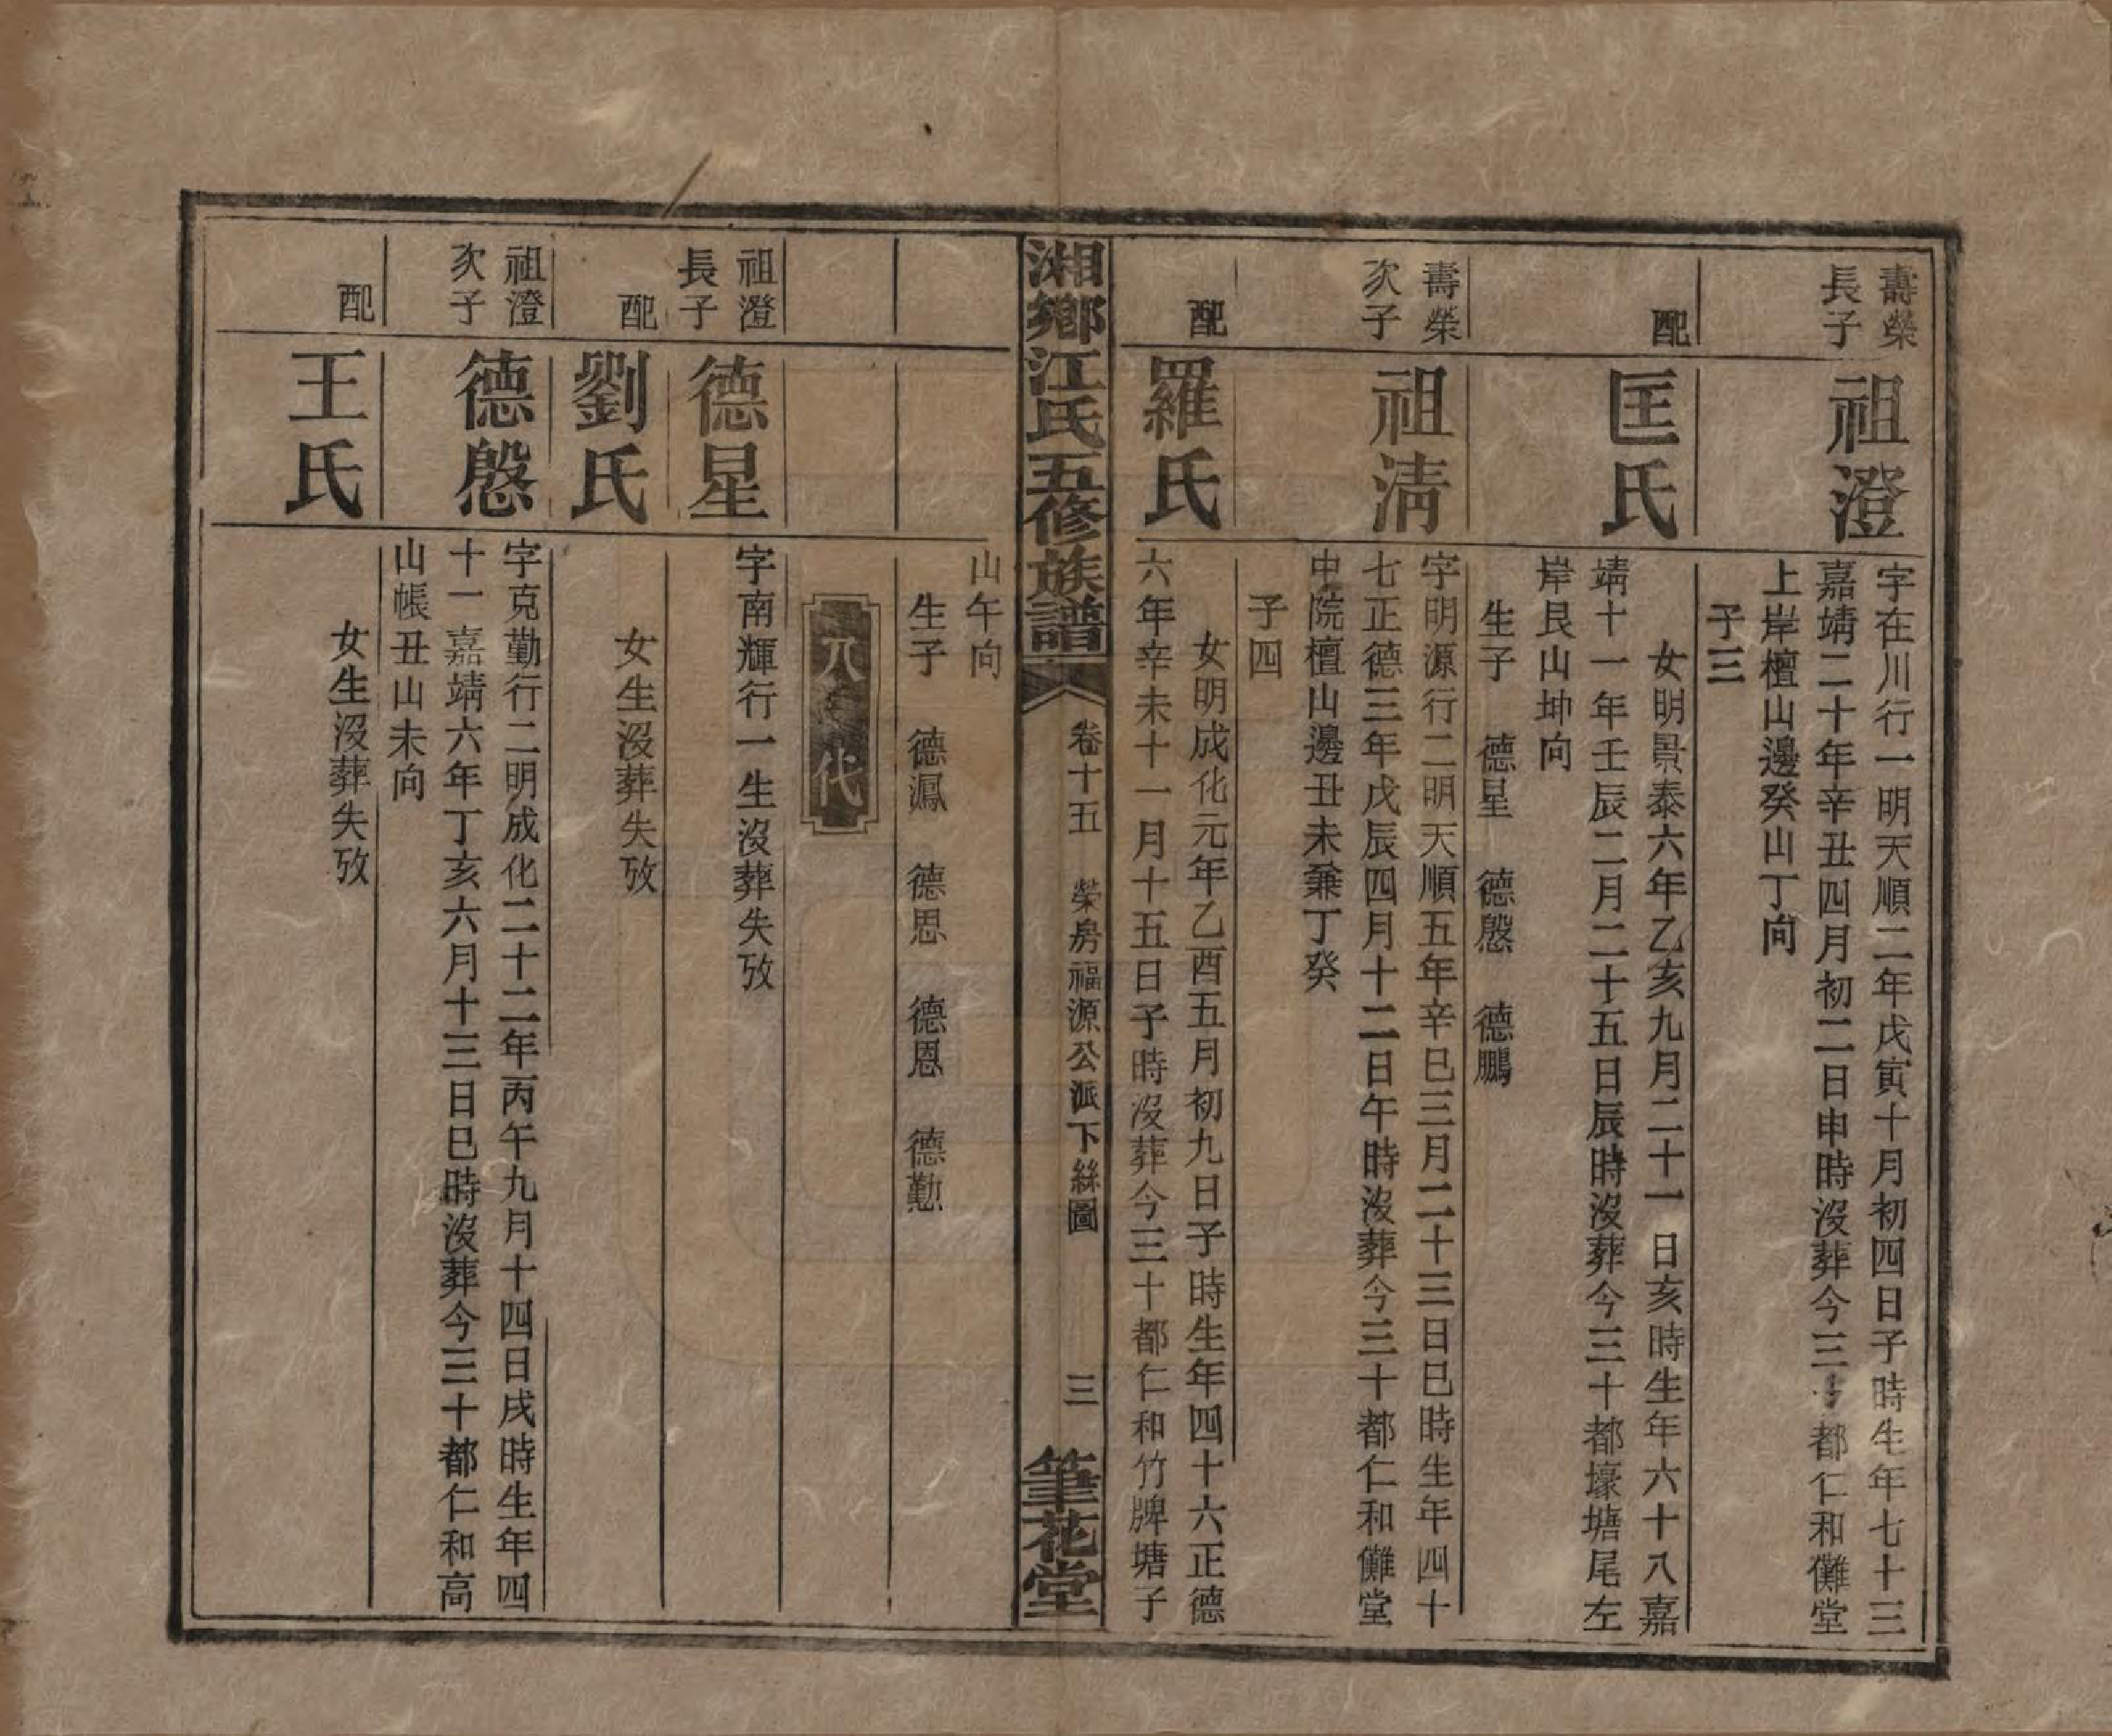 壽榮
長子
祖澄
字在川行一明天順二年戊寅十月初四日子時生年七十三
嘉靖二十年辛丑四月初二日申時沒葬今三十都仁和儺堂
上岸檀山邊癸山丁向
子三
配
匡氏
女明景泰六年乙亥九月二十一日亥時生年六十八嘉
靖十一年壬辰二月二十五日辰時沒葬今三十都壕塘尾左
岸艮山坤向
生子 德星 德慇 德鵬
壽榮
次子
祖清
字明源行二明天順五年辛巳三月二十三日巳時生年四十
七正德三年戊辰四月十二日午時沒葬今三十都仁和儺堂
中院檀山邊丑未兼丁癸
子四
配
羅氏
女明成化元年乙酉五月初九日子時生年四十六正德
六年辛未十一月十五日子時沒葬今三十都仁和竹牌塘子
湘鄉江氏五修族譜
卷十五 榮房福源公派下絲圖
三
筆花堂
山午向
生子 德鳳 德思 德恩 德勤
八代
祖澄
長子
德星
字南輝行一生沒葬失攷
配
劉氏
女生沒葬失攷
祖澄
次子
德慇
字克勤行二明成化二十二年丙午九月十四日戌時生年四
十一嘉靖六年丁亥六月十三日巳時沒葬今三十都仁和高
山帳丑山未向
配
王氏
女生沒葬失攷